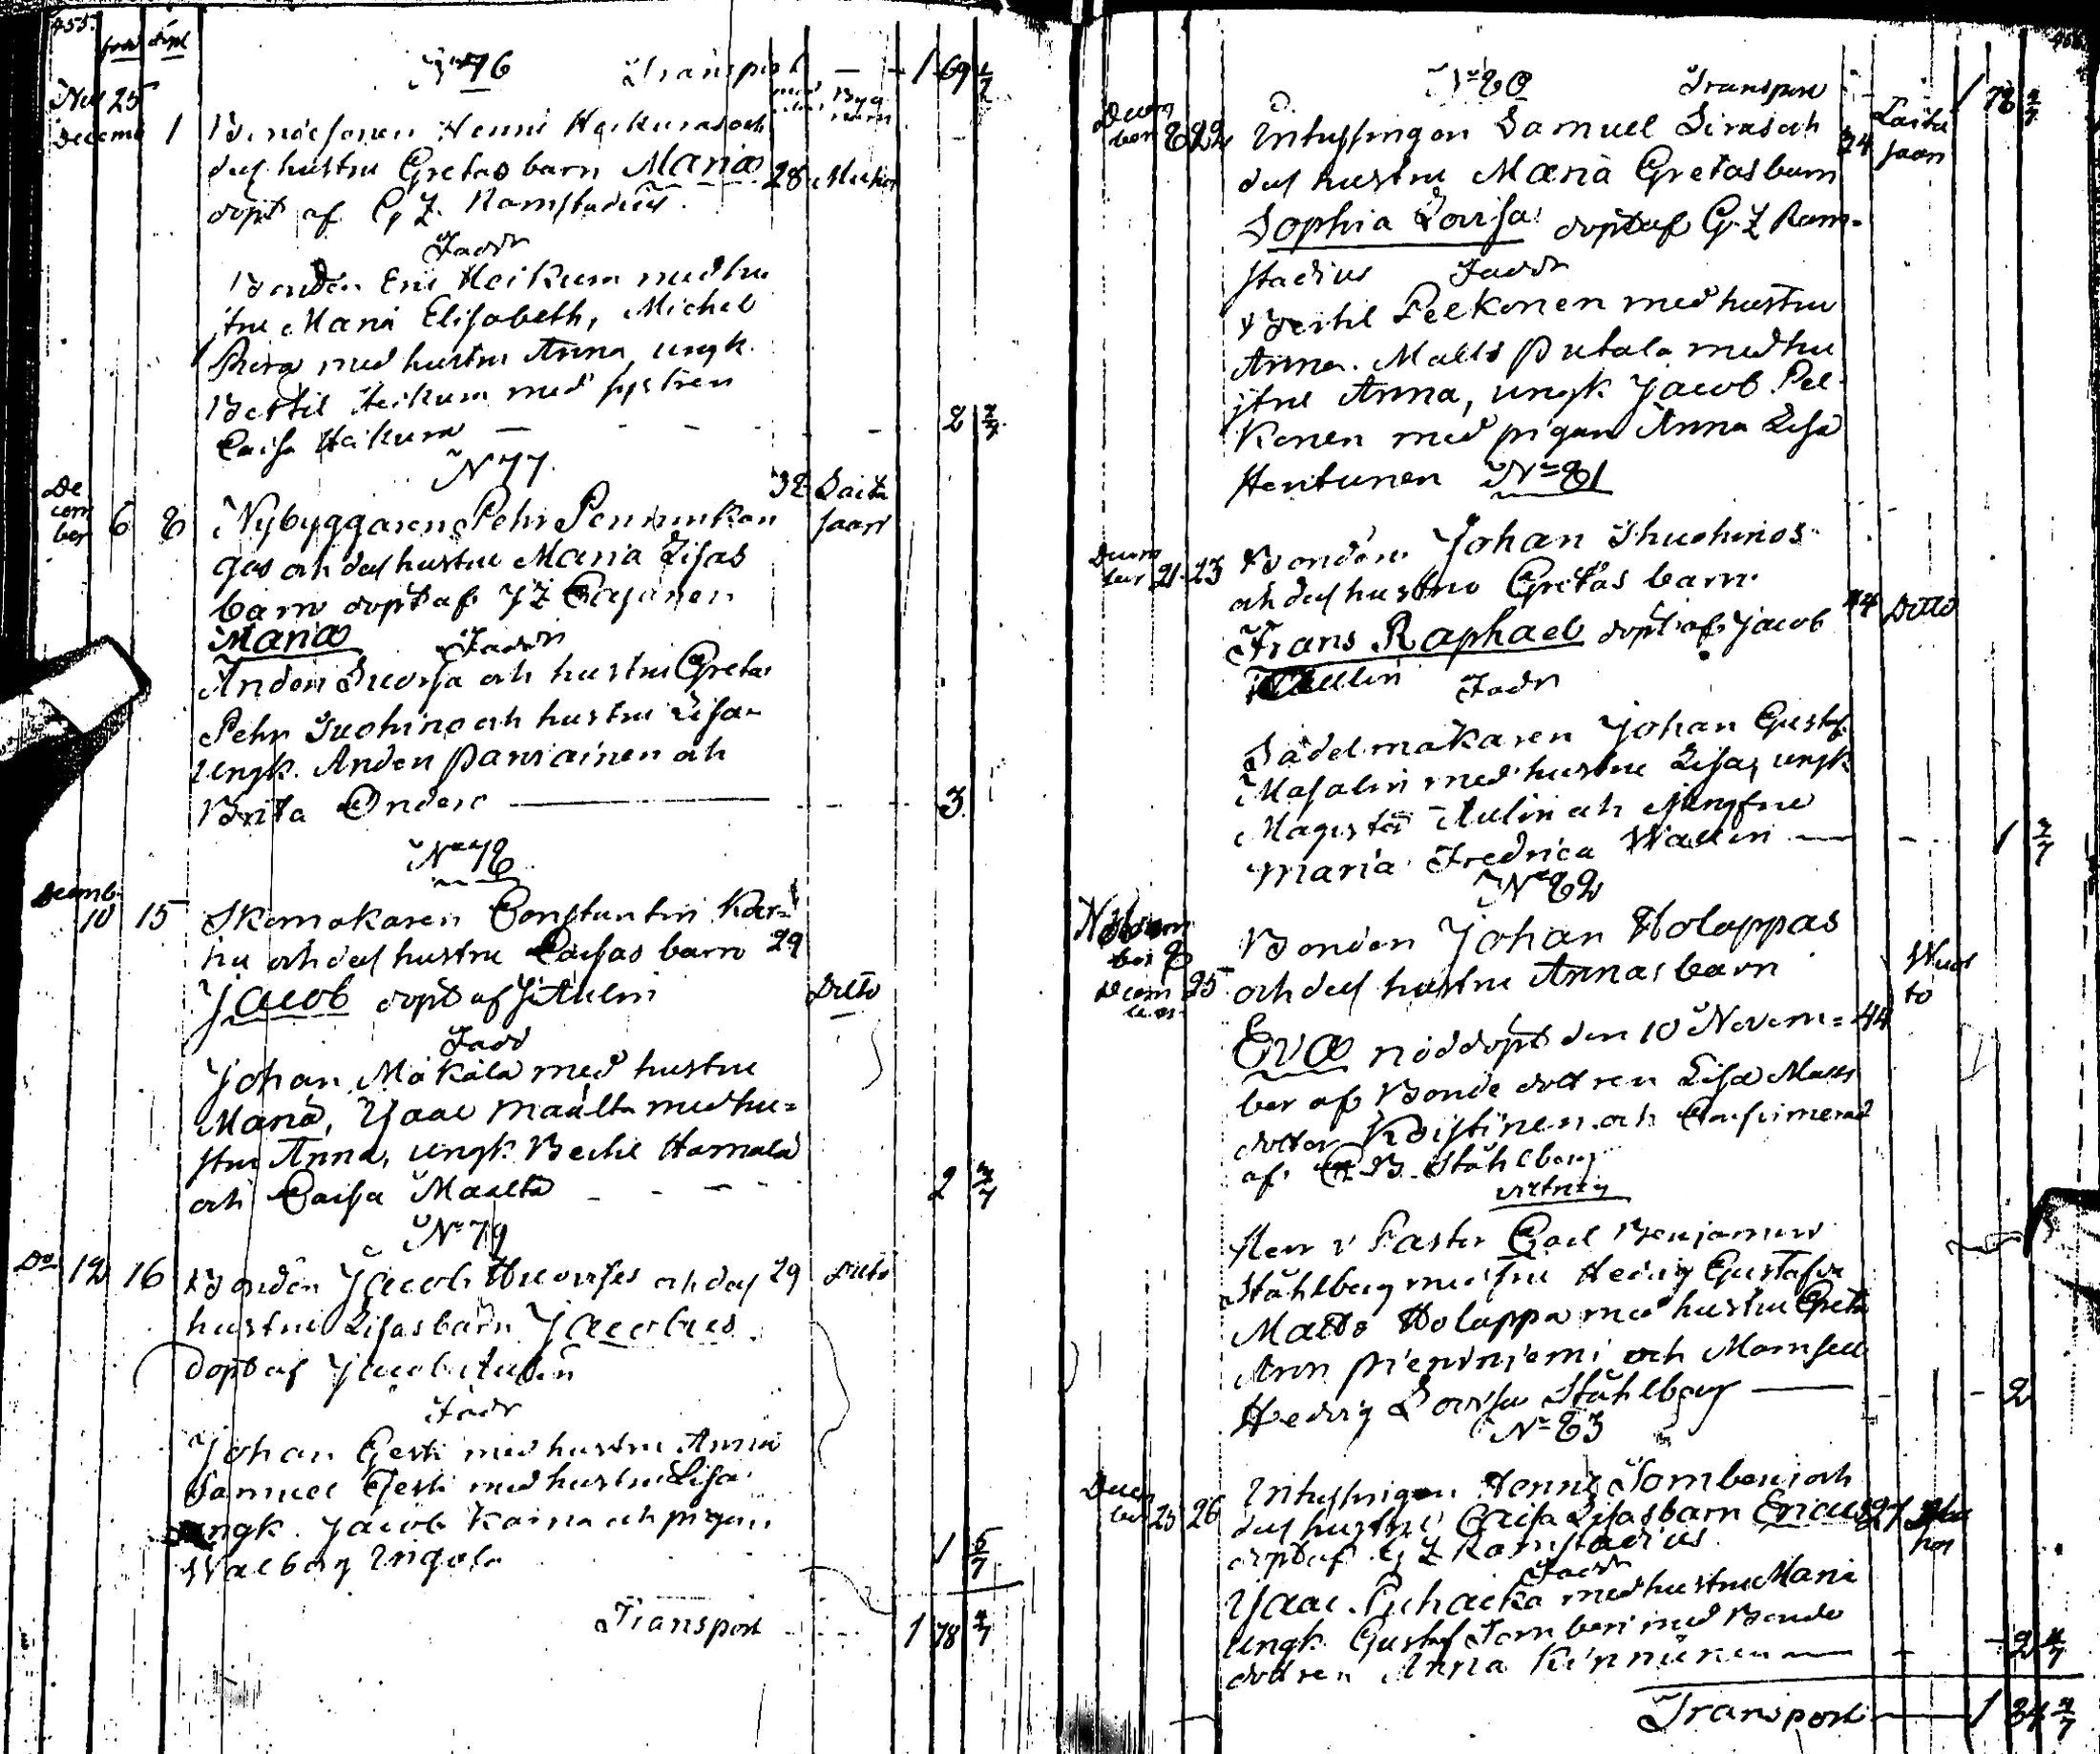 455.
född döpt
N 76 Transport — 1 69 2/7
Nov 25
Decemb 1 Bondesonen Henric Heikuras och
dess hustru Gretas barn Maria 28 Muhos
döpt af G Z. Ramstadius.
Faddr
Bonden Eric Heikura med hu
stru Maria Elisabeth, Michel
med hustru Anna, ungk.
Bertil Heikura med systren
Caisa Heikura — 2 2/7
N 77.
De
cem
ber 6 8 Nybyggarens Pehr
gas och dess hustru Maria Lisas 32 Laita
saari
barn döpt af J Z Cajanen
Maria Faddr
Anders och hustru Greta
Pehr Tuohino och hustru Lisa
ungk. Anders Parviainen och
Brita — 3
N 78
Decemb.
10 15 Skomakaren Constantin Kar=
hu och dess hustru Caisas barn 29
Jacob döpt af J: Aulin Ditto
Fadd
Johan Makala med hustru
Maria, Isaac Maalta med hu=
stru Anna, ungk. Bertil Hamala
och Caisa Maalta - - - 2 2/7
N 79
Do 12 16 Bonden Jacob och dess 29 Ditto
hustru Lisas barn Jacobus
döpt af Jacob Aulin
Faddr
Johan Gesti med hustru Anna
Samuel Gesti med hustru Lisa
ungk. Jacob Kaina och pigan
Walborg Ingola 1 5/7
Transport 1 78 4/7
N 80 Transport 1 78 4/7
Decem
ber 8 22 Inhysingen Samuel Siras och 24 Laita
saari
dess hustru Maria Gretas barn
Sophia Lovisa döpt af G. Z Ram-
stadius Faddr
Bertil Pelkonen med hustru
Anna. Matts Putala med hu
stru Anna, ungk Jacob Pel-
konen med pigan Anna Lisa
Hentunen N 81
Decem
ber 21 23 Bonden Johan Thuohinos
och dess hustru Gretas barn
Frans Raphael döpt af Jacob 44 Ditto
Wallin Faddr
Sadelmakaren Johan Gustaf
Masalin med hustru Lisa, ungk
Magister Aulin och Jungfru
Maria Fredrica Wallin — 1 2/7
N 82
Novem
ber 8 Bonden Johan Holappas
Decem
ber 25 och dess hustru Annas barn Wuol
to
Eva nöddöpt den 10 Novem= 44
ber af Bonde dottren Lisa Matts
dotter Koistinen och Confirmerad
af C. B. Ståhlberg
vittnen
Herr v Pastor Carl Benjamin
Ståhlberg med fru Hedvig Gustafva
Matts Holappa med hustru Greta
Aron Pieniniemi och Mamsell
Hedvig Lovisa Ståhlberg — 2
N 83
Decem
ber 25 26 Inhysingen Henric Tornberi och
dess hustru Caisa Lisas barn Ericus 27
döpt af G Z Ramstadius
Faddr
Isaac Puhacka med hustru Maria
ungk. Gustaf Tornberi med Bonde
dottren Anna Kinnunen — 2 4/7
Transport — 1 84 2/7